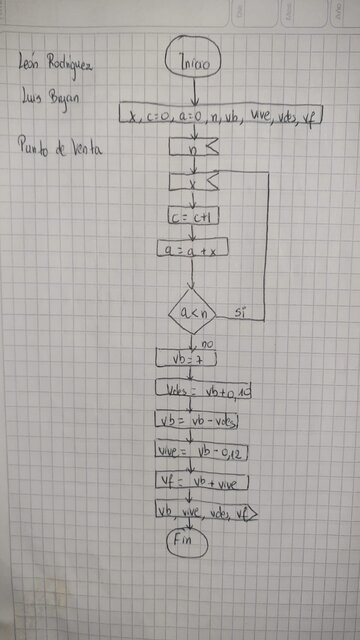 León Rodríguez
Luis Bryan
Punto de Venta
Inicio
x, c=0, a=0, n, vb, vive, vdes, vf
n
x
c = c+1
a = a + x
a < n
si
no
vb = 7
Vdes = vb+0,10
vb = vb - vdes
vive = vb-0,12
vf = vb + vive
vb, vive, vdes, vf
Fin